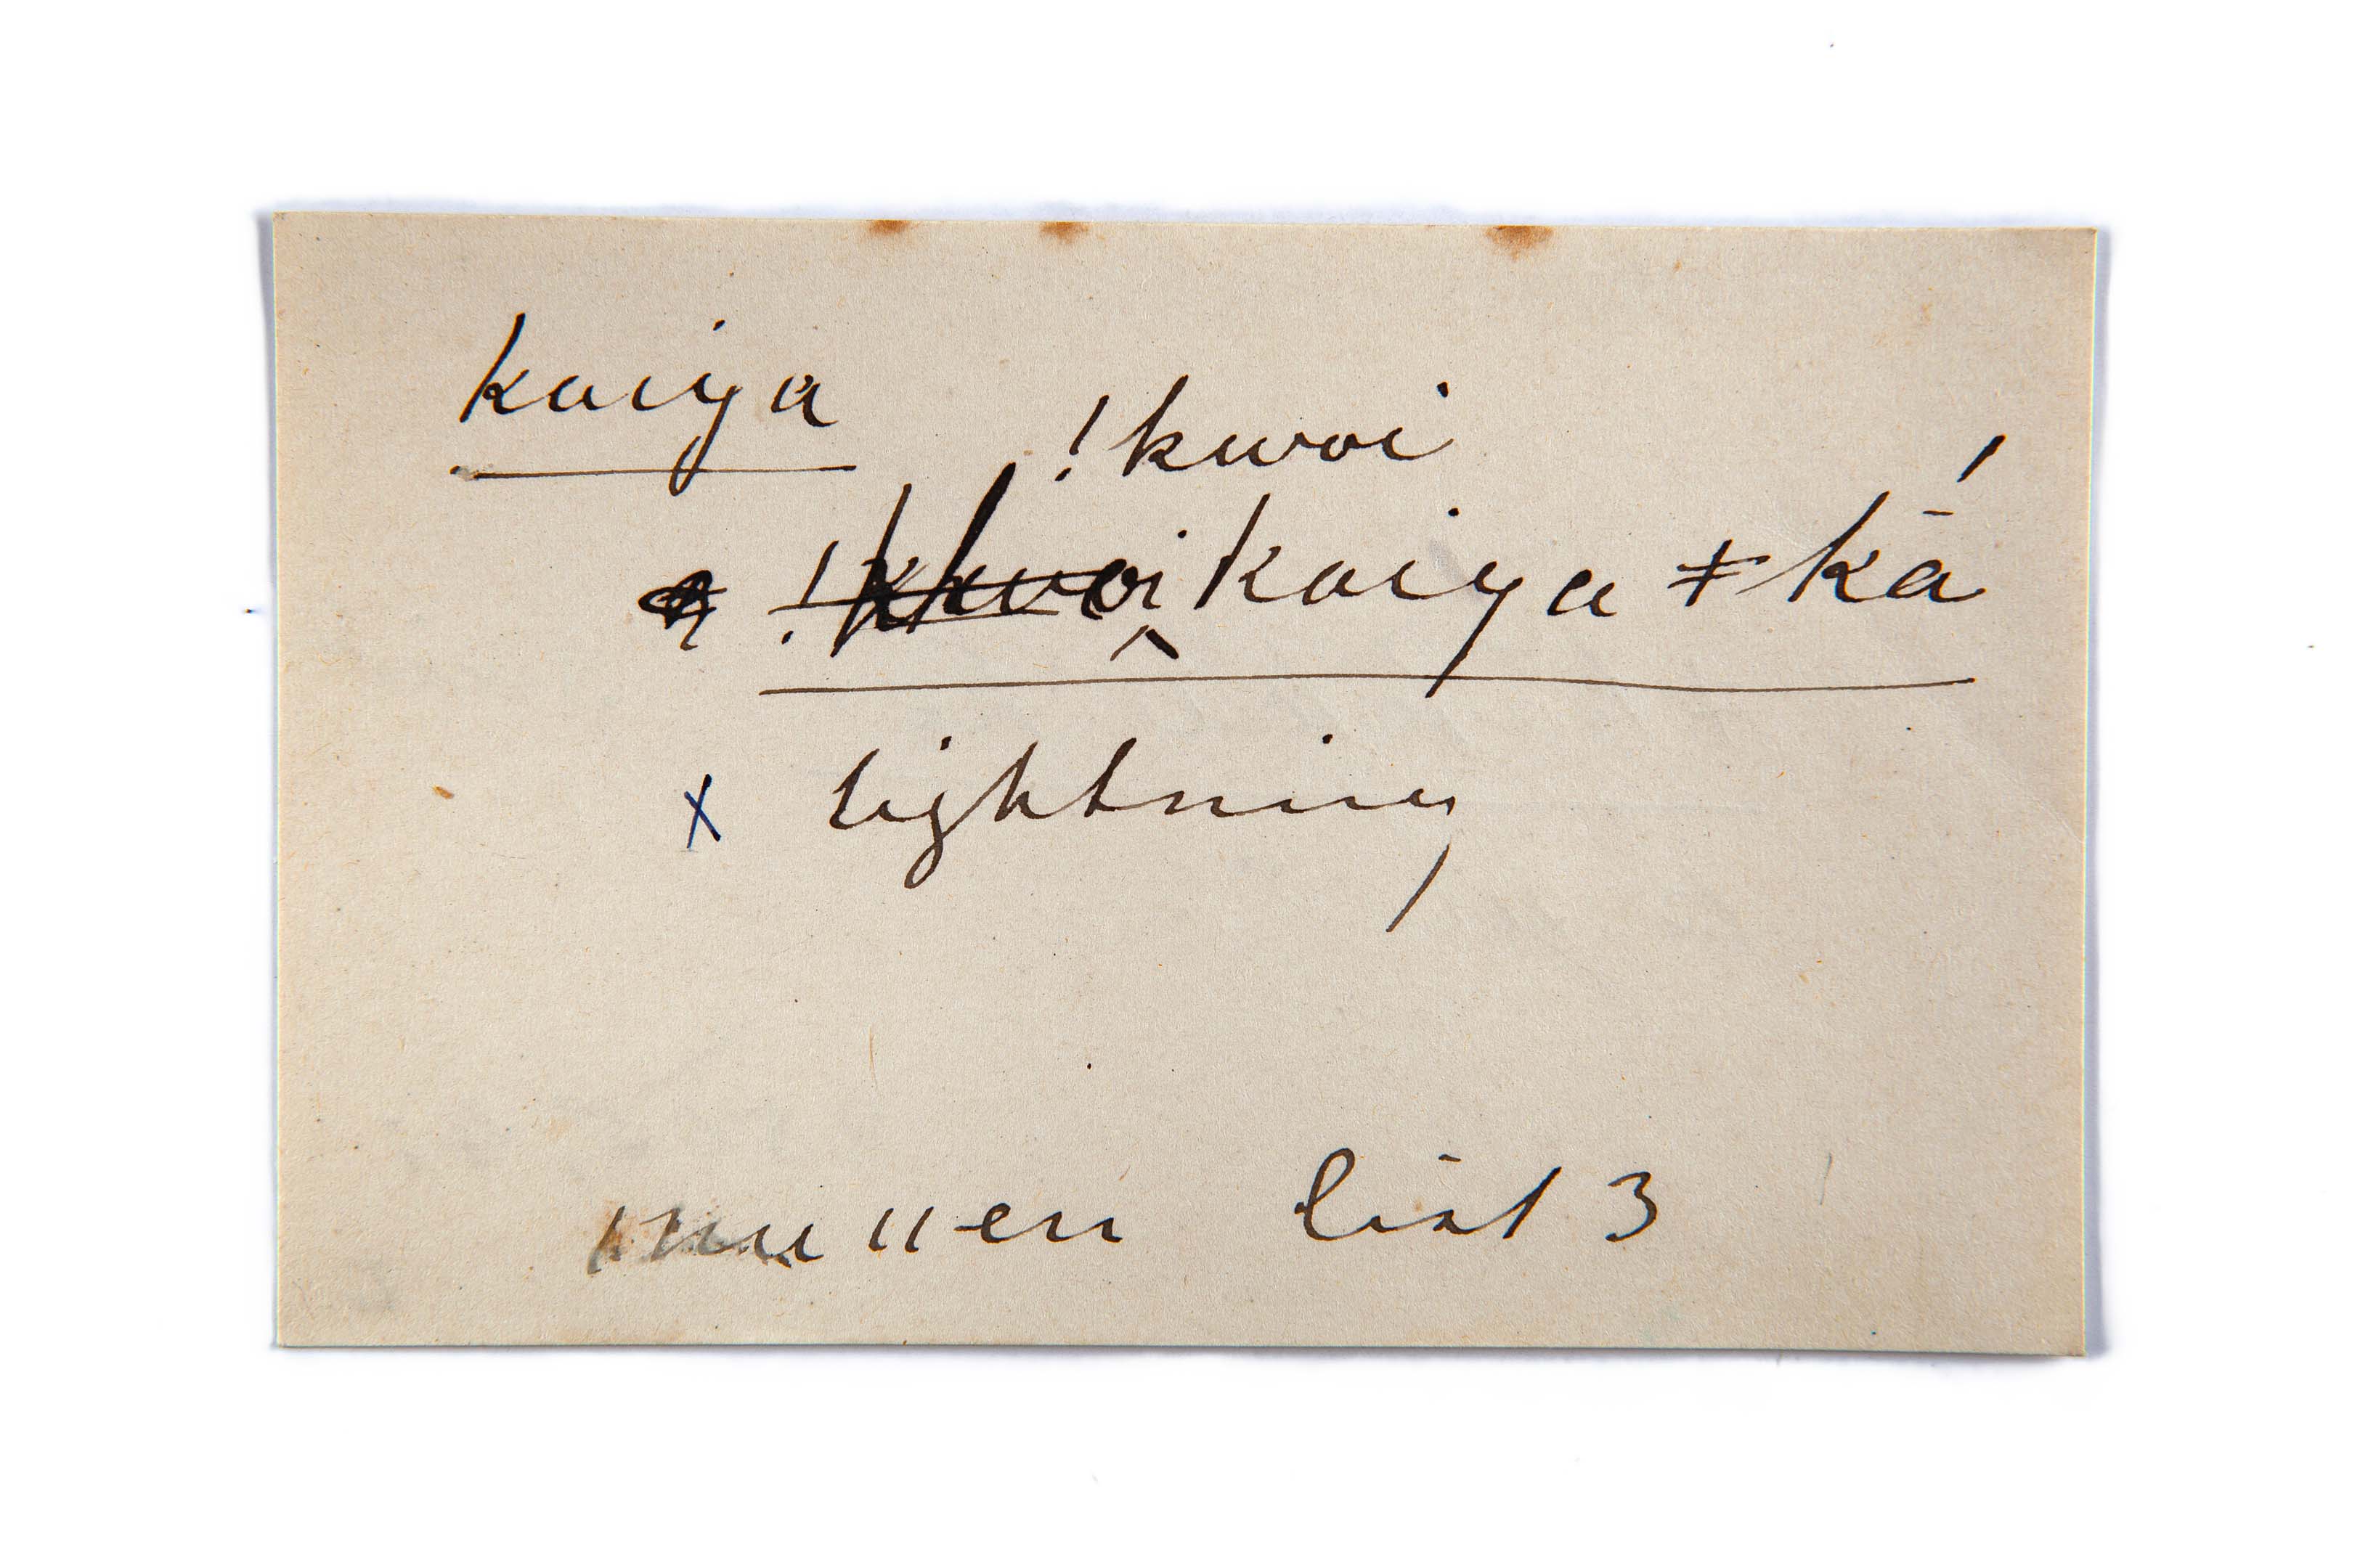 kaiya
!kwoi
!kwoi kaiya ǂkā́
x lightning
list 3